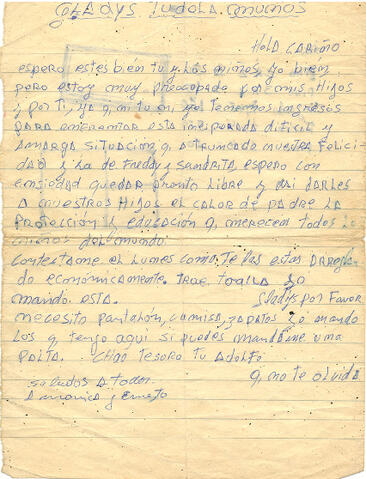 GLADYS TUDELA
Hola CARiÑo
espero estes bien tu y Los niños, yo bien
pero estoy muy preocupado por mis Hijos
y por Ti, ya q, ni tu ni yo tenemos ingresos
para enfrentar esta inesperada dificil y
AMARGA SITUACION q, A TRUNCADO NUESTRA FELICI
DAD y La de Freddy y SANDRITA, espero con
ansiedad quedar pronto Libre y asi darles
A nuestros Hijos el CALOR de padre La
PROTECCION y educacion q, merecen todos Lo
niños del mundo.
contestame el Lunes como te Las estas ARREGLAN
do económicamente. TRAE TOALLA yo
mando esta. Gladys por FAVOR
necesito pantalón, camisa, ZAPATOS yo mando
Los q, tengo aquí si puedes mandame una
PALTA. CHAO TESORO TU Adolfo
q, no te olvida
SALUDOS A Todos
A MONICA y Ernesto